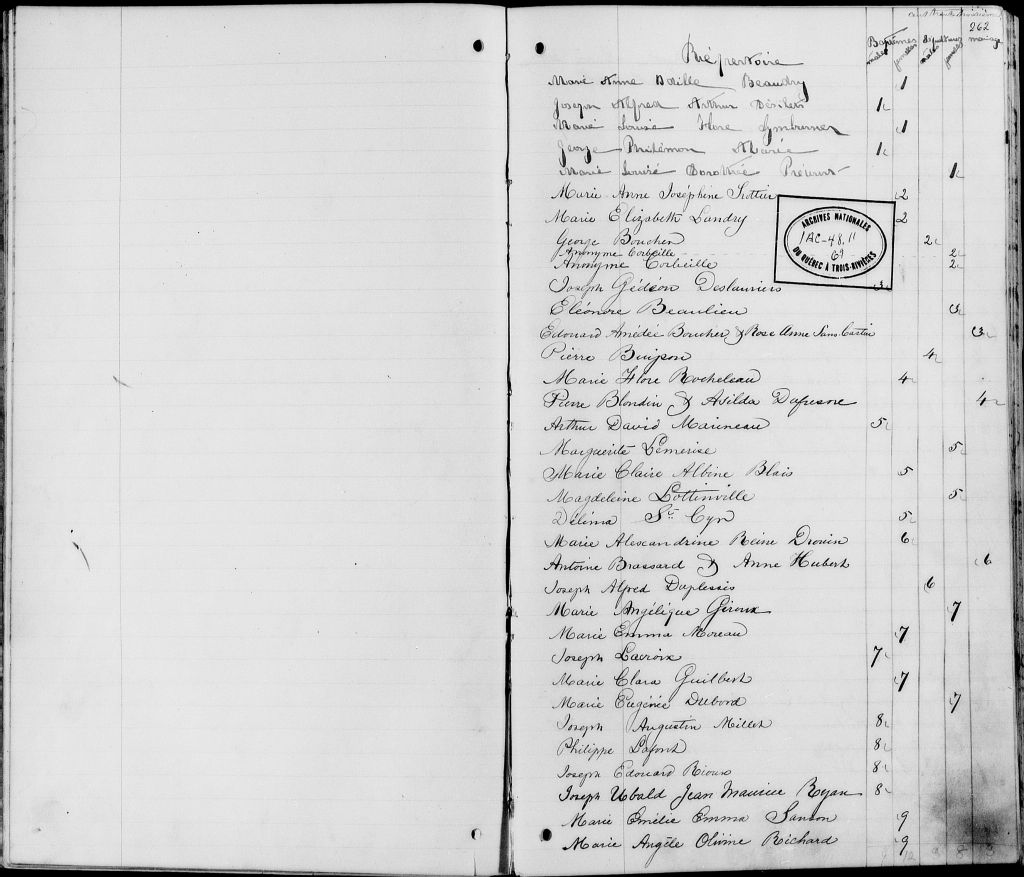 262
Baptêmes mariage
males femelles males femelles
Répertoire
Marie Anne Beaudry 1
Joseph Alfred Arthur Désilets 1
Marie Louise Flore 1
George Philémon Marié 1
Marie Dorothée 1
Marie Anne Joséphine Trottier 2
Marie Elizabeth Landry 2
George Boucher 2
Anonyme Corbeille 2
Anonyme Corbeille 2
Joseph Gédéon Deslauriers 3
Eléonore Beaulieu 3
Edouard Amédée Boucher & Rose Anne Sans Cartier 3
Pierre Buisson 4
Marie Flore Rocheleau 4
Pierre Blondin & Asilda Dufresne 4
Arthur David Marineau 5
Marguerite Lemerise 5
Marie Claire Albine Blais 5
Magdeleine Lottinville 5
Délima St Cyr 5
Marie Alexandrine Reine Drouin 6
Antoine Brassard & Anne Hubert 6
Joseph Alfred Duplessis 6
Marie Angélique Giroux 7
Marie Emma Moreau 7
Joseph Lacroix 7
Marie Clara Guilbert 7
Marie Eugénée Dubord 7
Joseph Augustin Millet 8
Philippe Lafont 8
Joseph Edouard Rioux 8
Joseph Ubald Jean Maurice Ryan 8
Marie Emélie Emma Sanson 9
Marie Angèle Olivine Richard 9
ARCHIVES NATIONALES
1AC-48.11
69
DU QUÉBEC À TROIS-RIVIÈRES